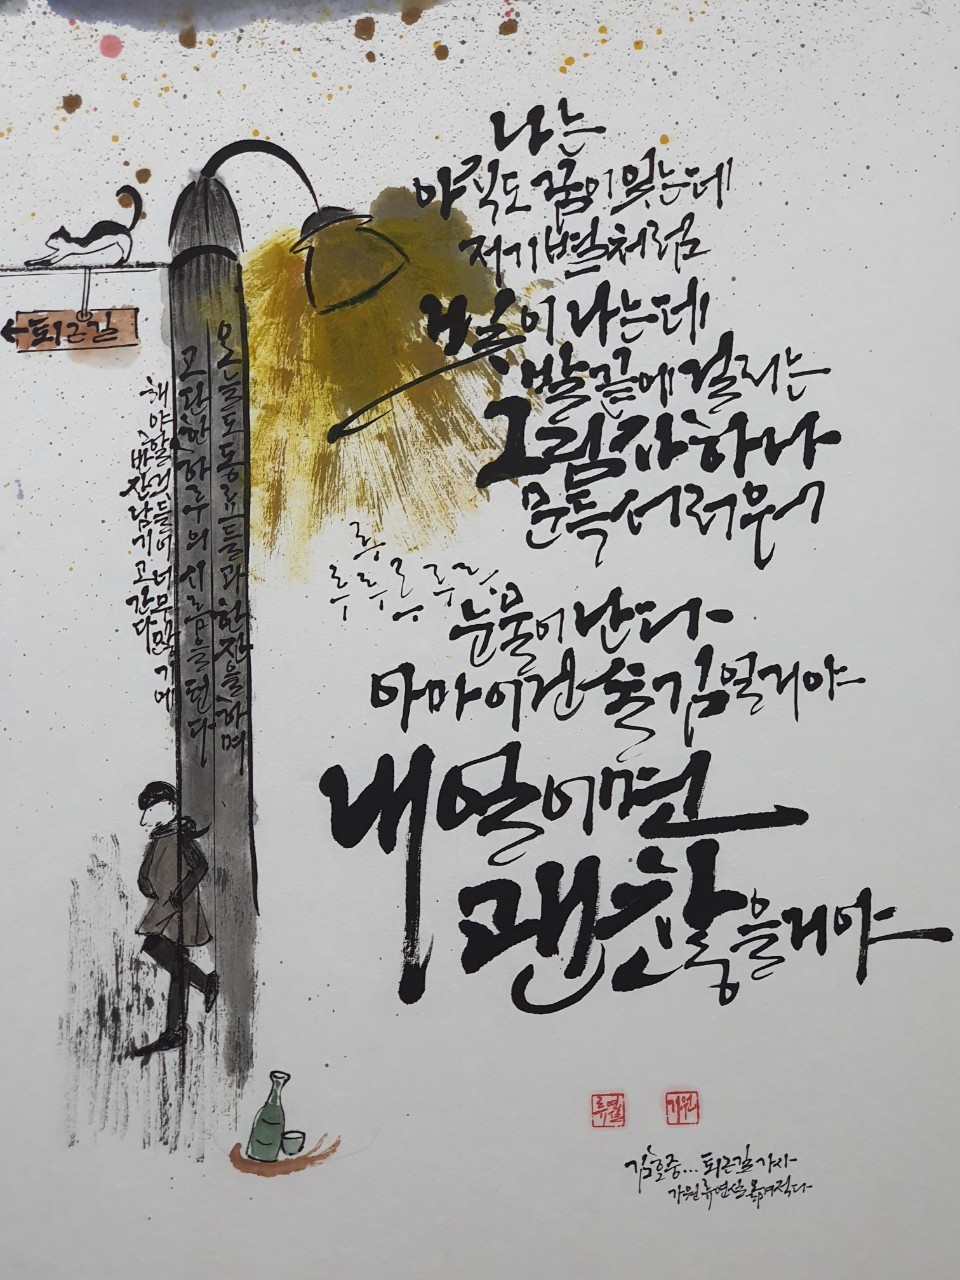 나는
아직도 꿈이 있는데
저기 별처럼
빛이 나는데
발끝에 걸리는
그림자 하나
문득 서러워
루루루루루
눈물이 난다
아마 이건 술김일거야
내일이면
괜찮을거야
←퇴근길
오늘도 동료들과 한잔을 하며
고단한 하루의 시름을 턴다
해야할 일들이 너무 많기에
빈잔 남기고 간다
류연설
가원
김호중... 퇴근길 가사
가원 류연설 옮겨적다